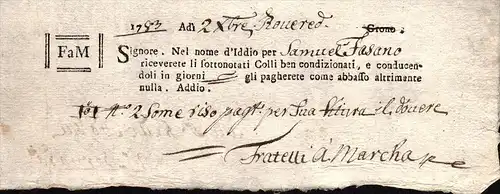 1783 Adi 2 Xbre. Rovered. Grono.
FaM
Signore. Nel nome d'Iddio per Samuel Fasano
riceverete li sottonotati Colli ben condizionati, e conducen-
doli in giorni gli pagherete come abbasso altrimente
nulla. Addio.
N.° 2 Some riso pag.te per sua vitura il dovere
Fratelli á Marcha